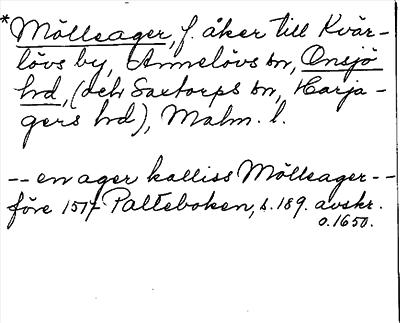 *Mölleager, f. åker till Kvär-
lövs by, Annelövs sn, Onsjö
hd, (och Saxtorps sn, Harja-
gers hd), Malm. l.
-- en ager kalliss Mölleager --
före 1517 Palteboken, s. 189. avskr.
o. 1650.